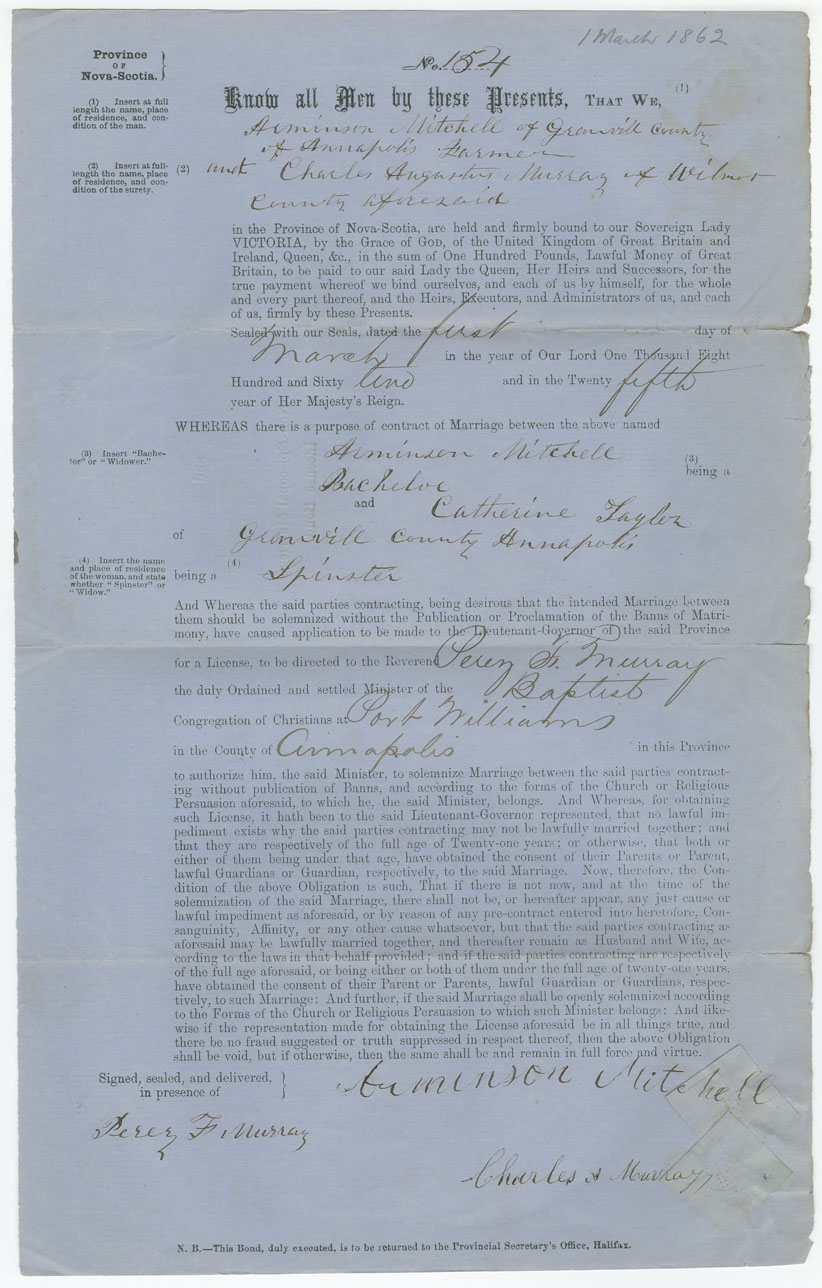 1 March 1862
Province
OF
Nova-Scotia.
No. 154
Know all Men by these Presents, THAT WE, (1)
(1) Insert at full
length the name, place
of residence, and con-
dition of the man.
Arminson Mitchell of Granvill County
of Annapolis Farmer
(2) Insert at full-
length the name, place
of residence, and con-
dition of the surety.
(2) and Charles Augustus Murray of Wilmot
County aforesaid
in the Province of Nova-Scotia, are held and firmly bound to our Sovereign Lady
VICTORIA, by the Grace of GOD, of the United Kingdom of Great Britain and
Ireland, Queen, &c., in the sum of One Hundred Pounds, Lawful Money of Great
Britain, to be paid to our said Lady the Queen, Her Heirs and Successors, for the
true payment whereof we bind ourselves, and each of us by himself, for the whole
and every part thereof, and the Heirs, Executors, and Administrators of us, and each
of us, firmly by these Presents.
Sealed with our Seals, dated the first day of
March in the year of Our Lord One Thousand Eight
Hundred and Sixty two and in the Twenty fifth
year of Her Majesty's Reign.
WHEREAS there is a purpose of contract of Marriage between the above named
(3) Insert "Bache-
lor" or "Widower."
Arminson Mitchell (3)
being a
Bachelor
and
Catherine Taylor
of Granvill County Annapolis
(4) Insert the name
and place of residence
of the woman, and state
whether "Spinster" or
"Widow."
(4)
being a Spinster
And Whereas the said parties contracting, being desirous that the intended Marriage between
them should be solemnized without the Publication or Proclamation of the Banns of Matri-
mony, have caused application to be made to the Lieutenant-Governor of the said Province
for a License, to be directed to the Reverend Perez F. Murray
the duly Ordained and settled Minister of the Baptist
Congregation of Christians at Port Williams
in the County of Annapolis in this Province
to authorize him, the said Minister, to solemnize Marriage between the said parties contract-
ing without publication of Banns, and according to the forms of the Church or Religious
Persuasion aforesaid, to which he, the said Minister, belongs. And Whereas, for obtaining
such License, it hath been to the said Lieutenant-Governor represented, that no lawful im-
pediment exists why the said parties contracting may not be lawfully married together; and
that they are respectively of the full age of Twenty-one years; or otherwise, that both or
either of them being under that age, have obtained the consent of their Parents or Parent,
lawful Guardians or Guardian, respectively, to the said Marriage. Now, therefore, the Con-
dition of the above Obligation is such, That if there is not now, and at the time of the
solemnization of the said Marriage, there shall not be, or hereafter appear, any just cause or
lawful impediment as aforesaid, or by reason of any pre-contract entered into heretofore, Con-
sanguinity, Affinity, or any other cause whatsoever, but that the said parties contracting as
aforesaid may be lawfully married together, and thereafter remain as Husband and Wife, ac-
cording to the laws in that behalf provided; and if the said parties contracting are respectively
of the full age aforesaid, or being either or both of them under the full age of twenty-one years,
have obtained the consent of their Parent or Parents, lawful Guardian or Guardians, respec-
tively, to such Marriage: And further, if the said Marriage shall be openly solemnized according
to the Forms of the Church or Religious Persuasion to which such Minister belongs: And like-
wise if the representation made for obtaining the License aforesaid be in all things true, and
there be no fraud suggested or truth suppressed in respect thereof, then the above Obligation
shall be void, but if otherwise, then the same shall be and remain in full force and virtue.
Signed, sealed, and delivered,
in presence of
Arminson Mitchell
Perez F. Murray
Charles A Murray
N. B.—This Bond, duly executed, is to be returned to the Provincial Secretary's Office, Halifax.